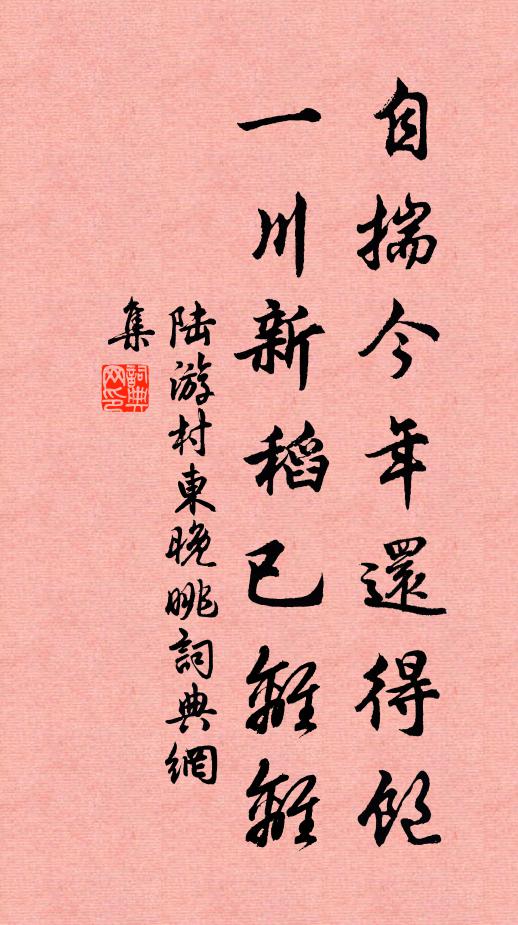 自揣今年還得飽
一川新稻已離離
陸游村東晚眺詞典網
集
詞典
网印